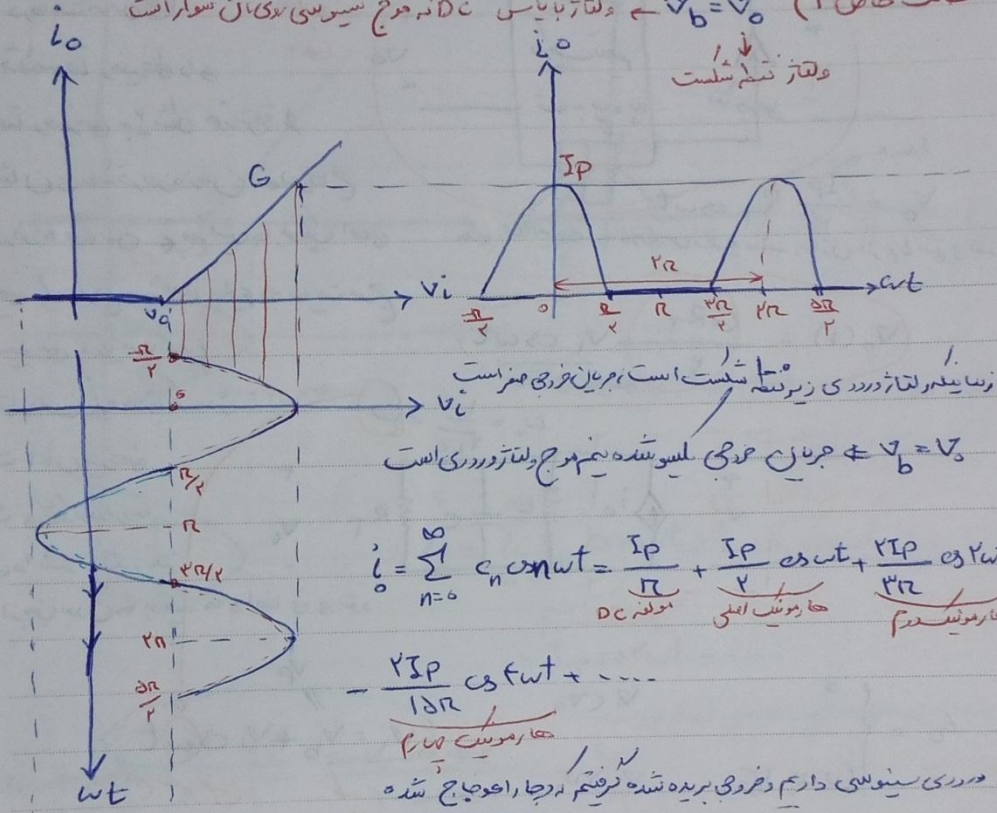 حالت خاص ۱) V_b = V_o ⇒ ولتاژ بایاس DC که موج سینوسی روی آن سوار است
ولتاژ نقطه شکست
i_o
G
V_i
V_o
-π/۲
۰
V_i
π/۲
π
۳π/۲
۲π
۵π/۲
ωt
i_o
I_P
۲π
-π/۲ ۰ π/۲ π ۳π/۲ ۲π ۵π/۲ ωt
زمانیکه ولتاژ ورودی زیر نقطه شکست است، جریان خروجی صفر است
V_b = V_o ⇒ جریان خروجی یکسو شده نیم موج ولتاژ ورودی است
i_o = ∑_{n=0}^{∞} c_n cos nωt = I_P/π + I_P/۲ cos ωt + ۲I_P/۳π cos ۲ω
مولفه DC هارمونیک اصلی هارمونیک دوم
- ۲I_P/۱۵π cos ۴ωt + ....
هارمونیک چهارم
ورودی سینوسی داریم و خروجی بریده شده گرفتیم که دچار اعوجاج شده